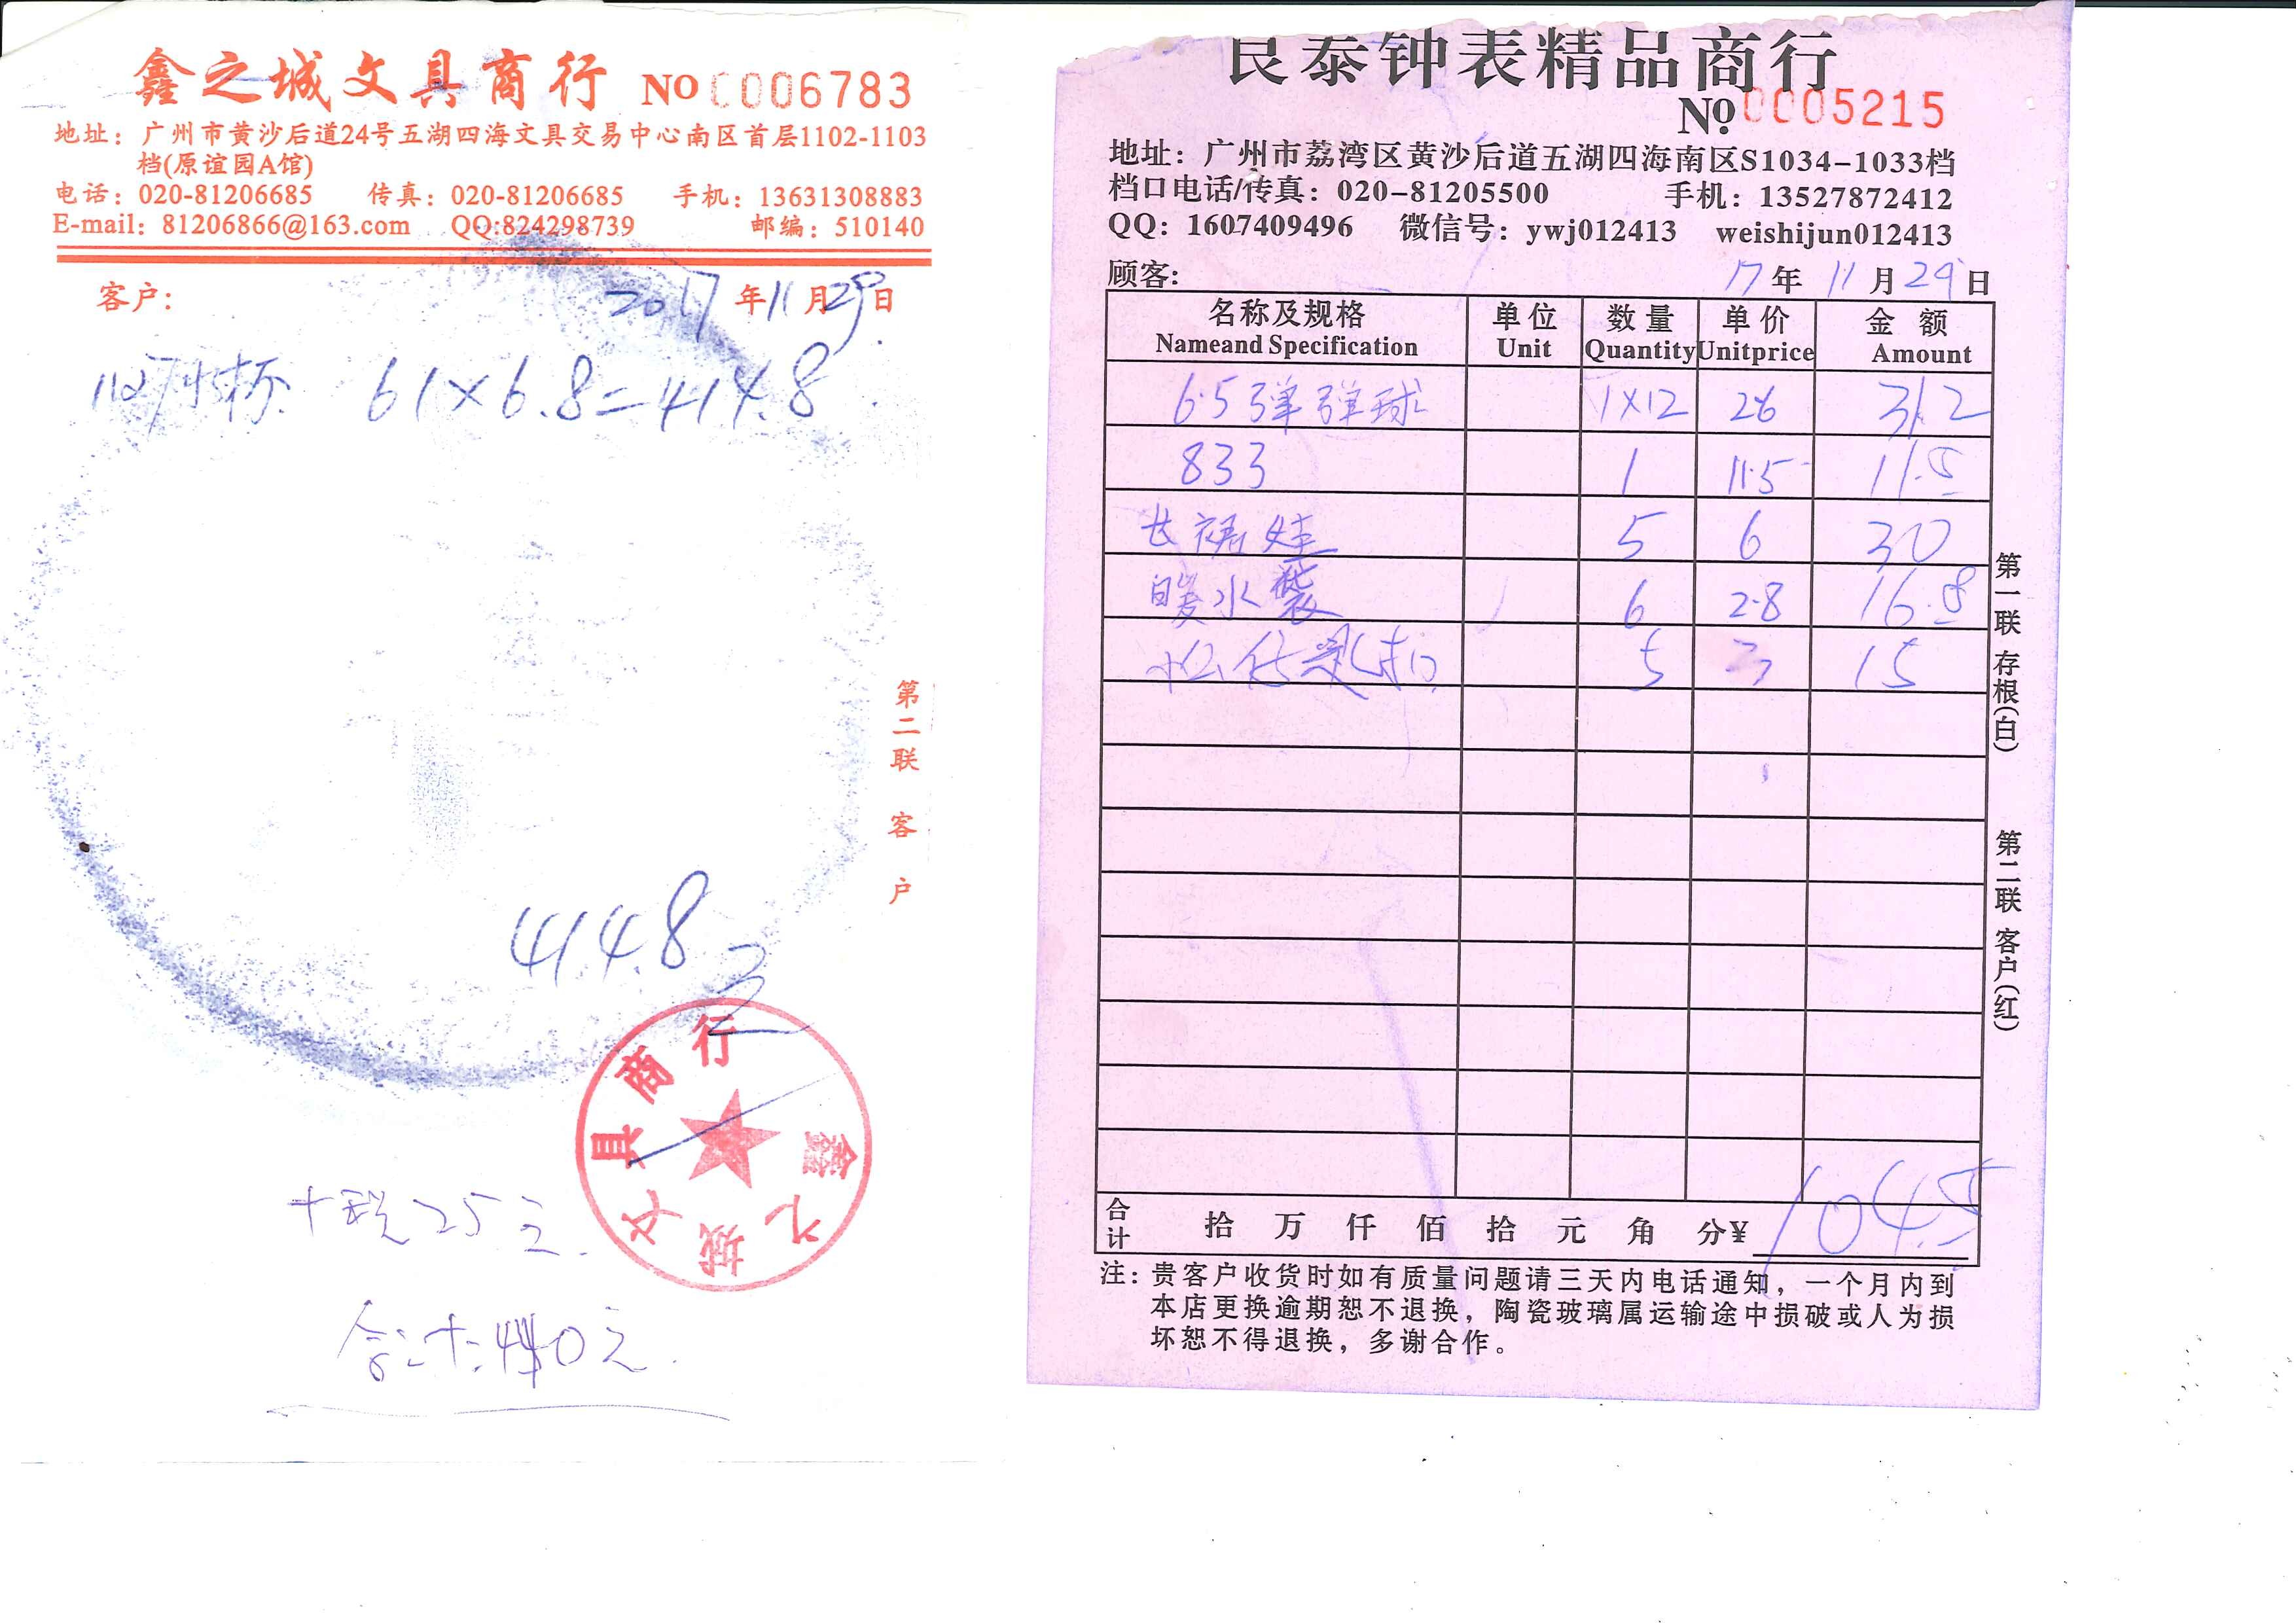 鑫之城文具商行 NO 0006783
地址：广州市黄沙后道24号五湖四海文具交易中心南区首层1102-1103
档(原谊园A馆)
电话：020-81206685 传真：020-81206685 手机：13631308883
E-mail：81206866@163.com QQ:824298739 邮编：510140
客户：
2017年11月29日
61×6.8=414.8
第二联 客户
414.8
鑫之城文具商行
+税25元.
合计:440元.
民泰钟表精品商行
№ 0005215
地址：广州市荔湾区黄沙后道五湖四海南区S1034-1033档
档口电话/传真：020-81205500 手机：13527872412
QQ：1607409496 微信号：ywj012413 weishijun012413
顾客：
17年11月29日
名称及规格 单位 数量 单价 金额
Nameand Specification Unit Quantity Unitprice Amount
6.5弹弹球 1×12 2.6 31.2
833 1 11.5 11.5
长裙娃 5 6 30
暖水袋 6 2.8 16.8
5 3 15
第一联 存根(白)
第二联 客户(红)
合计 拾 万 仟 佰 拾 元 角 分¥ 104.5
注：贵客户收货时如有质量问题请三天内电话通知，一个月内到
本店更换逾期恕不退换，陶瓷玻璃属运输途中损破或人为损
坏恕不得退换，多谢合作。